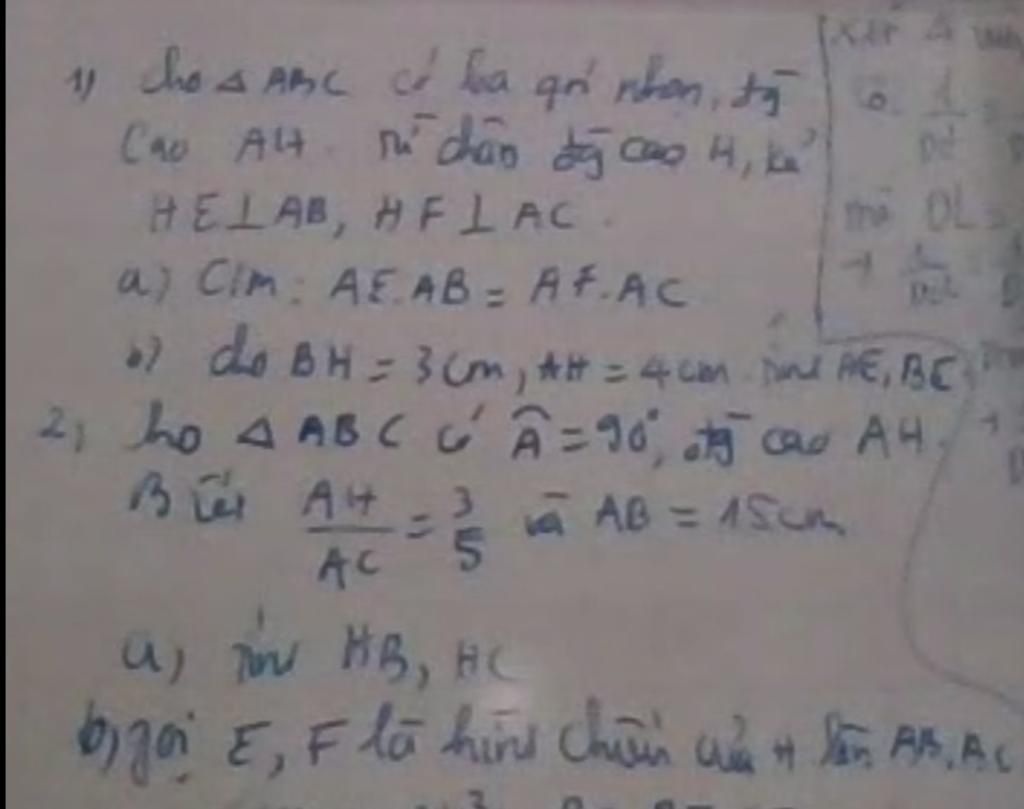 1) Cho △ ABC có ba góc nhọn, đg
Cao AH. Từ chân đg cao H, kẻ
HE⊥AB, HF⊥AC.
a) C/m: AE.AB = AF.AC
b) cho BH = 3cm, AH = 4cm. Tính AE, BE
2, Cho △ ABC có Â = 90°, đg cao AH.
Biết AH/AC = 3/5 và AB = 15cm
a, Tính HB, HC
b, gọi E, F là hình chiếu của H lên AB, AC